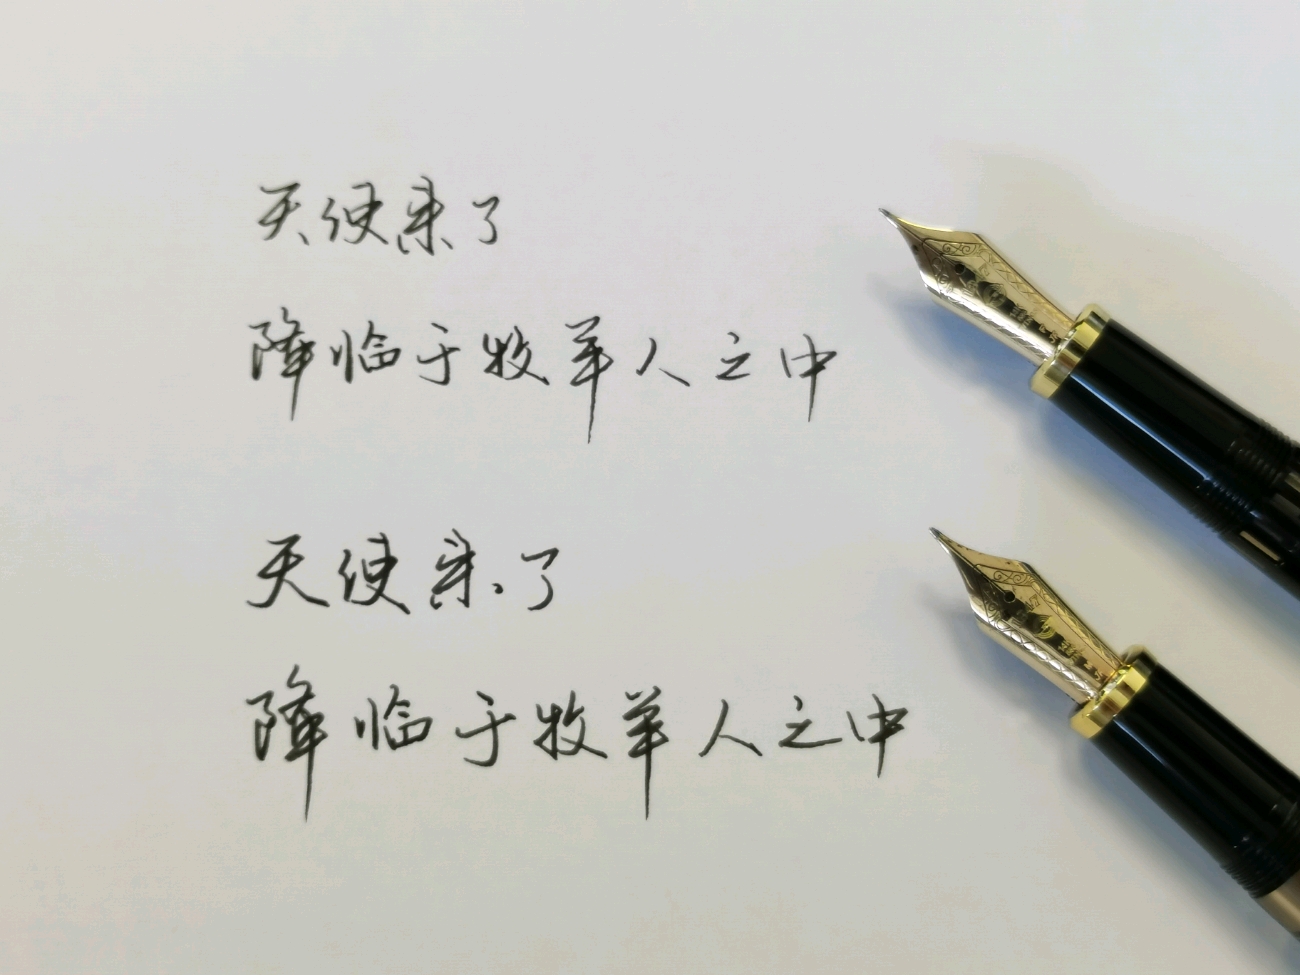 天使来了
降临于牧羊人之中
天使来了
降临于牧羊人之中